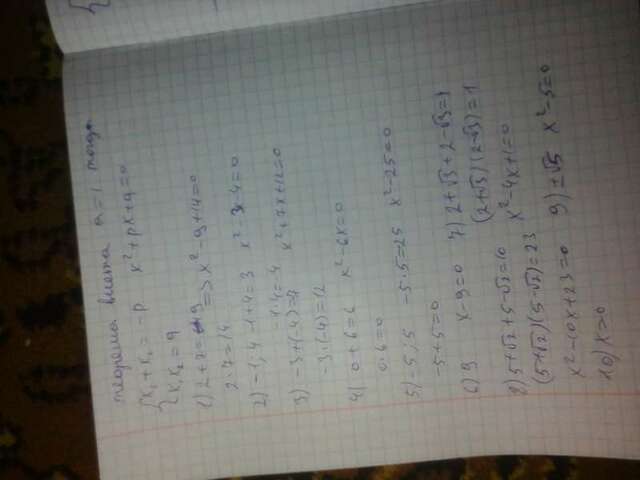 теорема Виета a=1 тогда
{x₁+x₂=-p x²+px+q=0
x₁x₂=q
1) 2+7=9 => x²-9+14=0
2·7=14
2) -1; 4 -1+4=3 x²-3x-4=0
-1·4=-4
3) -3+(-4)=-7 x²+7x+12=0
-3·(-4)=12
4) 0+6=6 x²-6x=0
0·6=0
5) -5; 5 -5·5=25 x²-25=0
-5+5=0
6) 9 x-9=0 7) 2+√3+2-√3=
(2+√3)(2-√3)=1
8) 5+√2+5-√2=10 x²-4x+1=0
(5+√2)(5-√2)=23
x²-10x+23=0 9) ±√5 x²-5=0
10) x=0